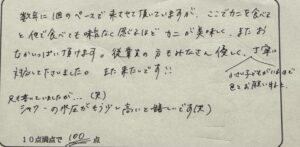 数年に1回のペースで来させて頂いていますが、ここでカニを食べる
と他で食べても味気なく感じるほどカニが美味しく、また お
なかいっぱい頂けます。従業員の方もみなさん優しく、丁寧に
対応して下さいました。また来たいです!!
小さい子どもがいるので
色々お願いしました
兄も言っていましたが…(笑)
シャワーの水圧がもう少し高いと嬉しいです(笑)
10点満点で 100 点